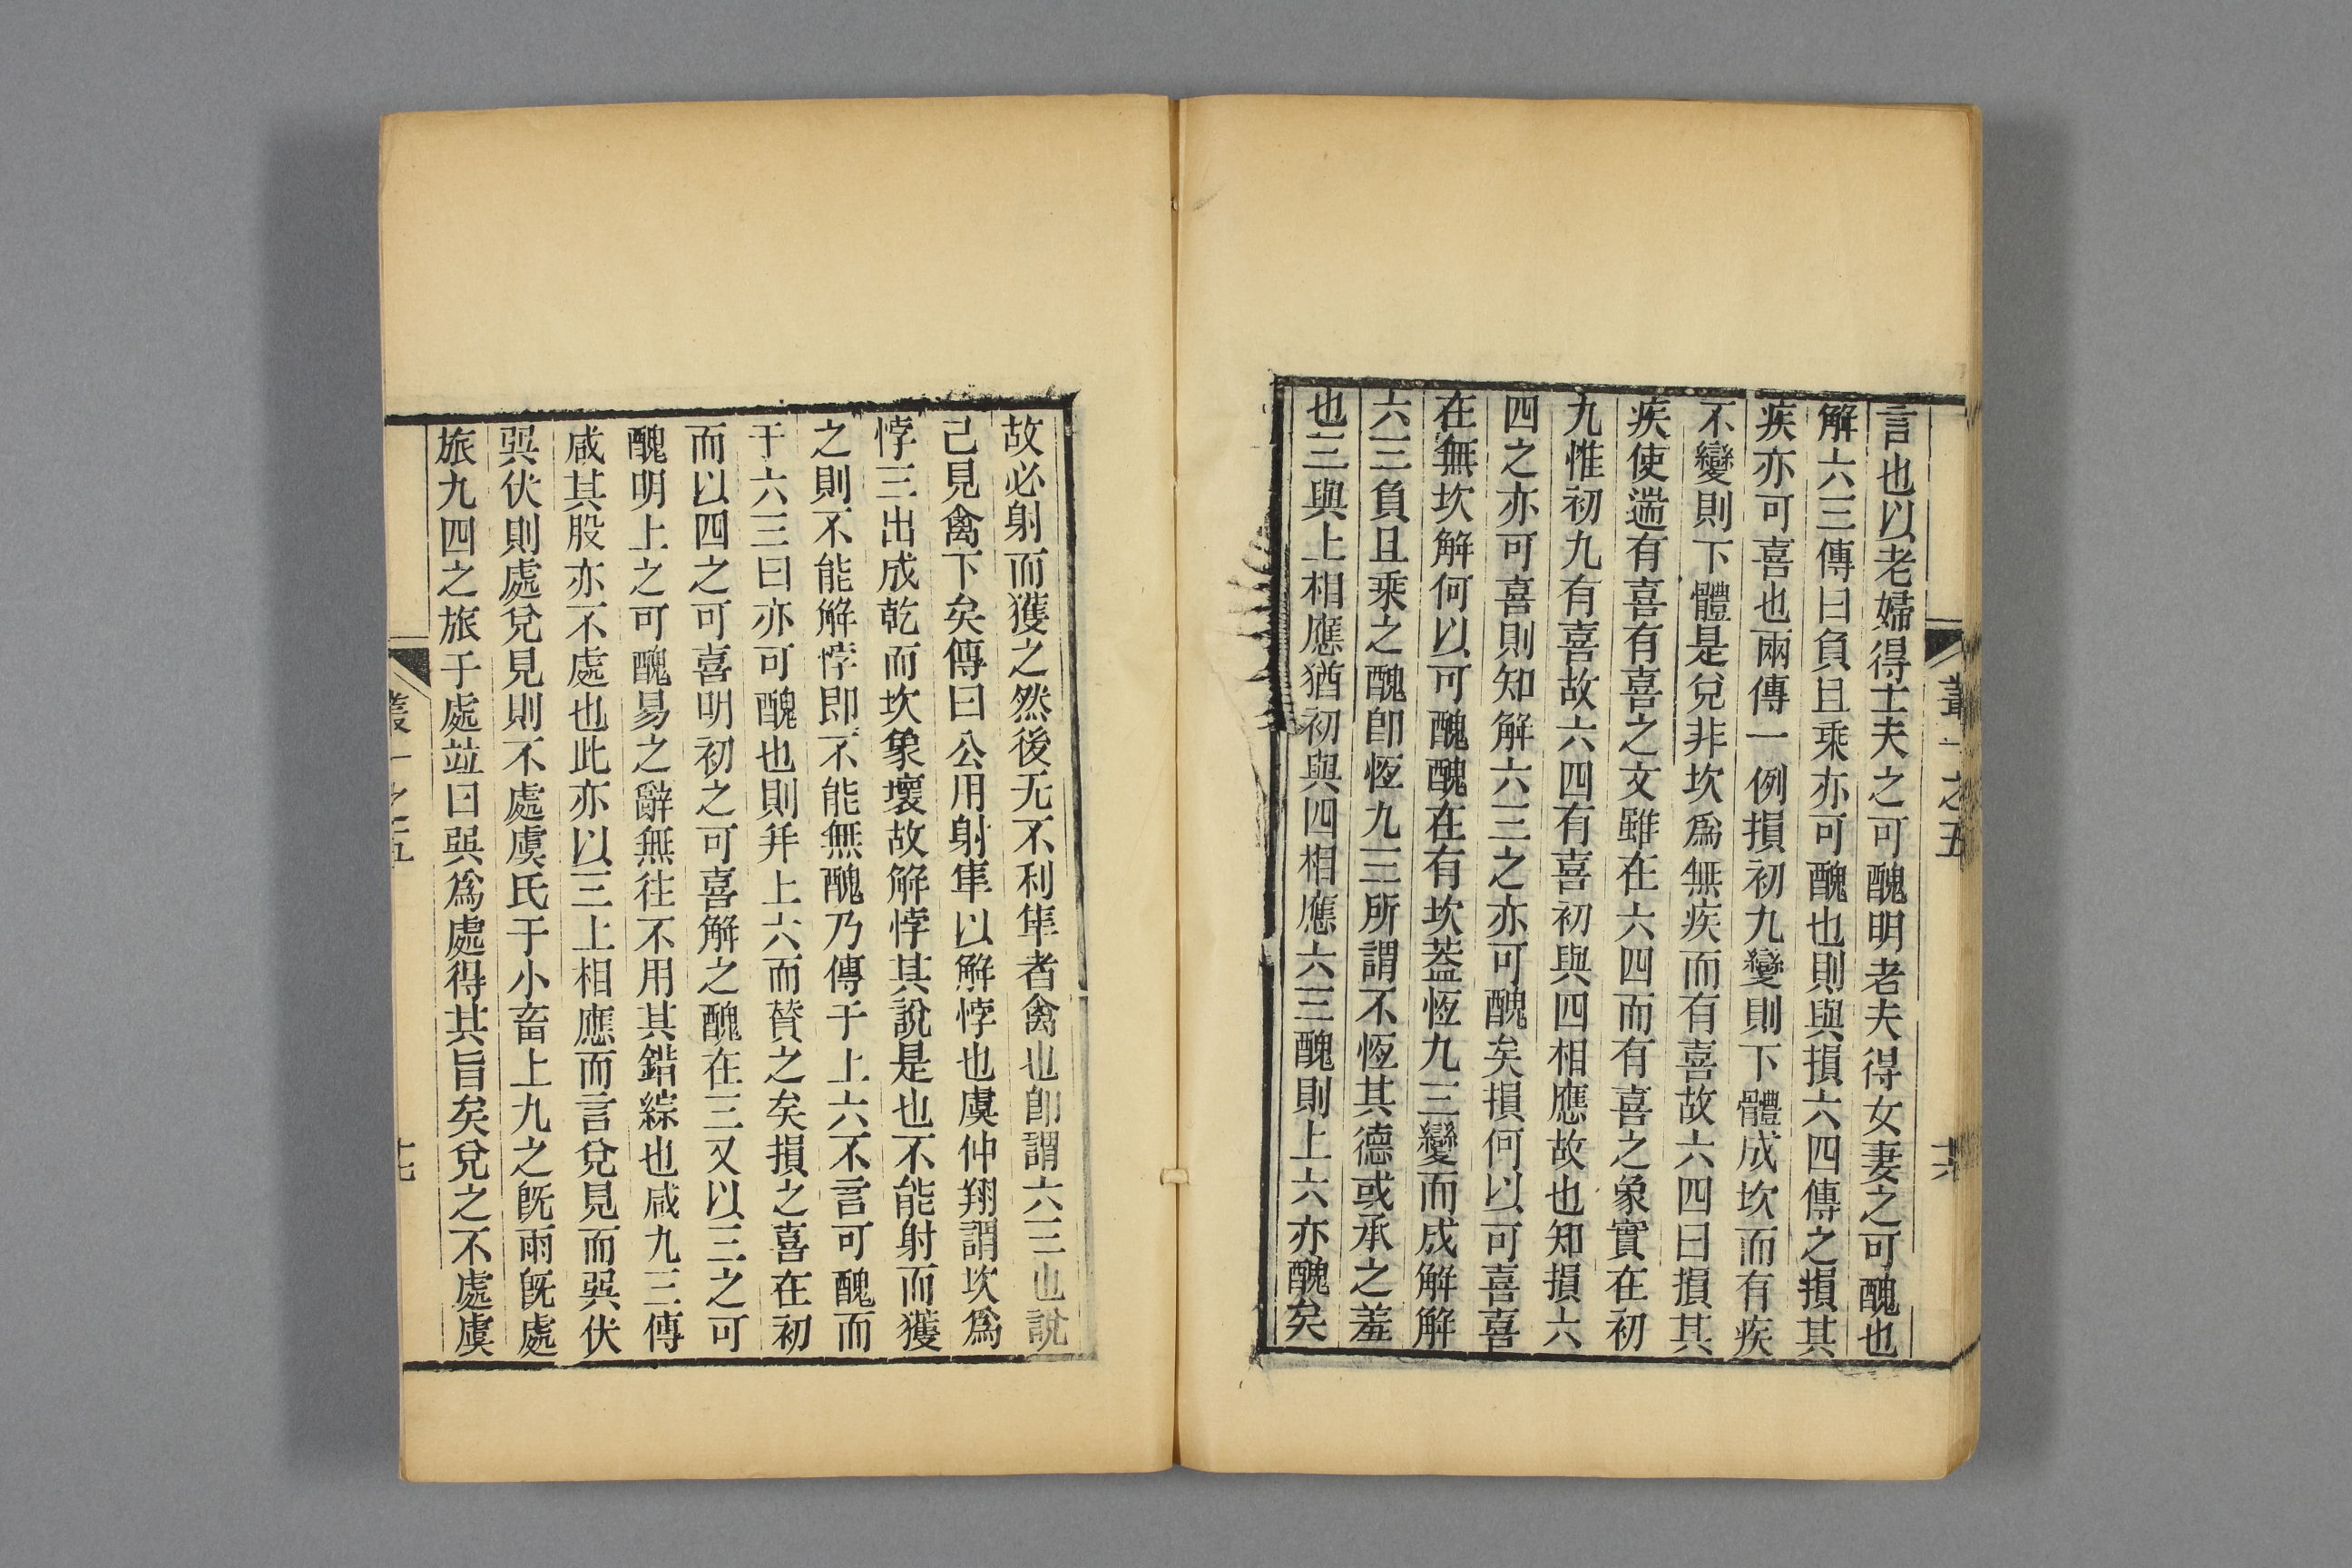 叢一之五
十六
言也以老婦得士夫之可醜明老夫得女妻之可醜也
解六三傳曰負且乘亦可醜也則與損六四傳之損其
疾亦可喜也兩傳一例損初九變則下體成坎而有疾
不變則下體是兌非坎爲無疾而有喜故六四曰損其
疾使遄有喜有喜之文雖在六四而有喜之象實在初
九惟初九有喜故六四有喜初與四相應故也知損六
四之亦可喜則知解六三之亦可醜矣損何以可喜喜
在無坎解何以可醜醜在有坎葢恆九三變而成解解
六三負且乘之醜卽恆九三所謂不恆其德或承之羞
也三與上相應猶初與四相應六三醜則上六亦醜矣
故必射而獲之然後无不利隼者禽也卽謂六三也說
己見禽下矣傳曰公用射隼以解悖也虞仲翔謂坎爲
悖三出成乾而坎象壞故解悖其說是也不能射而獲
之則不能解悖即不能無醜乃傳于上六不言可醜而
于六三曰亦可醜也則幷上六而賛之矣損之喜在初
而以四之可喜明初之可喜解之醜在三又以三之可
醜明上之可醜易之辭無往不用其錯綜也咸九三傳
咸其股亦不處也此亦以三上相應而言兌見而巽伏
巽伏則處兌見則不處虞氏于小畜上九之旣雨旣處
旅九四之旅于處竝曰巽爲處得其旨矣兌之不處虞
叢一之五
十七